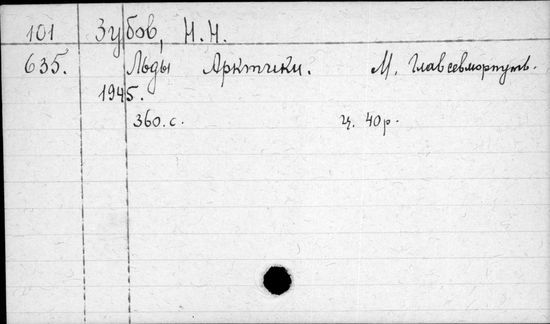 101 Зубов, Н.Н.
635. Льды Арктики. М, Главсевморпуть.
1945.
360.с. ц. 40р.